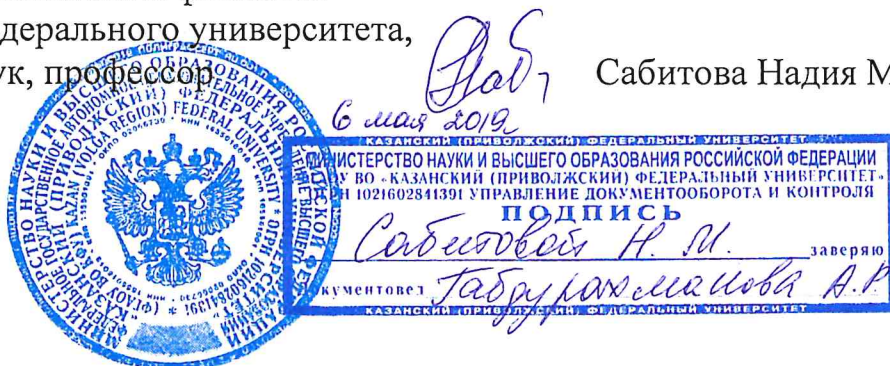 дерального университета,
ук, профессор
Сабитова Надия М
6 мая 2019
КАЗАНСКИЙ (ПРИВОЛЖСКИЙ) ФЕДЕРАЛЬНЫЙ УНИВЕРСИТЕТ
МИНИСТЕРСТВО НАУКИ И ВЫСШЕГО ОБРАЗОВАНИЯ РОССИЙСКОЙ ФЕДЕРАЦИИ
У ВО «КАЗАНСКИЙ (ПРИВОЛЖСКИЙ) ФЕДЕРАЛЬНЫЙ УНИВЕРСИТЕТ»
РН 1021602841391 УПРАВЛЕНИЕ ДОКУМЕНТООБОРОТА И КОНТРОЛЯ
ПОДПИСЬ
Сабитовой Н. М. заверяю
кументовед Габдурахманова А.Р
КАЗАНСКИЙ (ПРИВОЛЖСКИЙ) ФЕДЕРАЛЬНЫЙ УНИВЕРСИТЕТ
МИНИСТЕРСТВО НАУКИ И ВЫСШЕГО ОБРАЗОВАНИЯ РОССИЙСКОЙ ФЕ
KAZAN (VOLGA REGION) FEDERAL UNIVERSITY * ОГРН 1021602841391